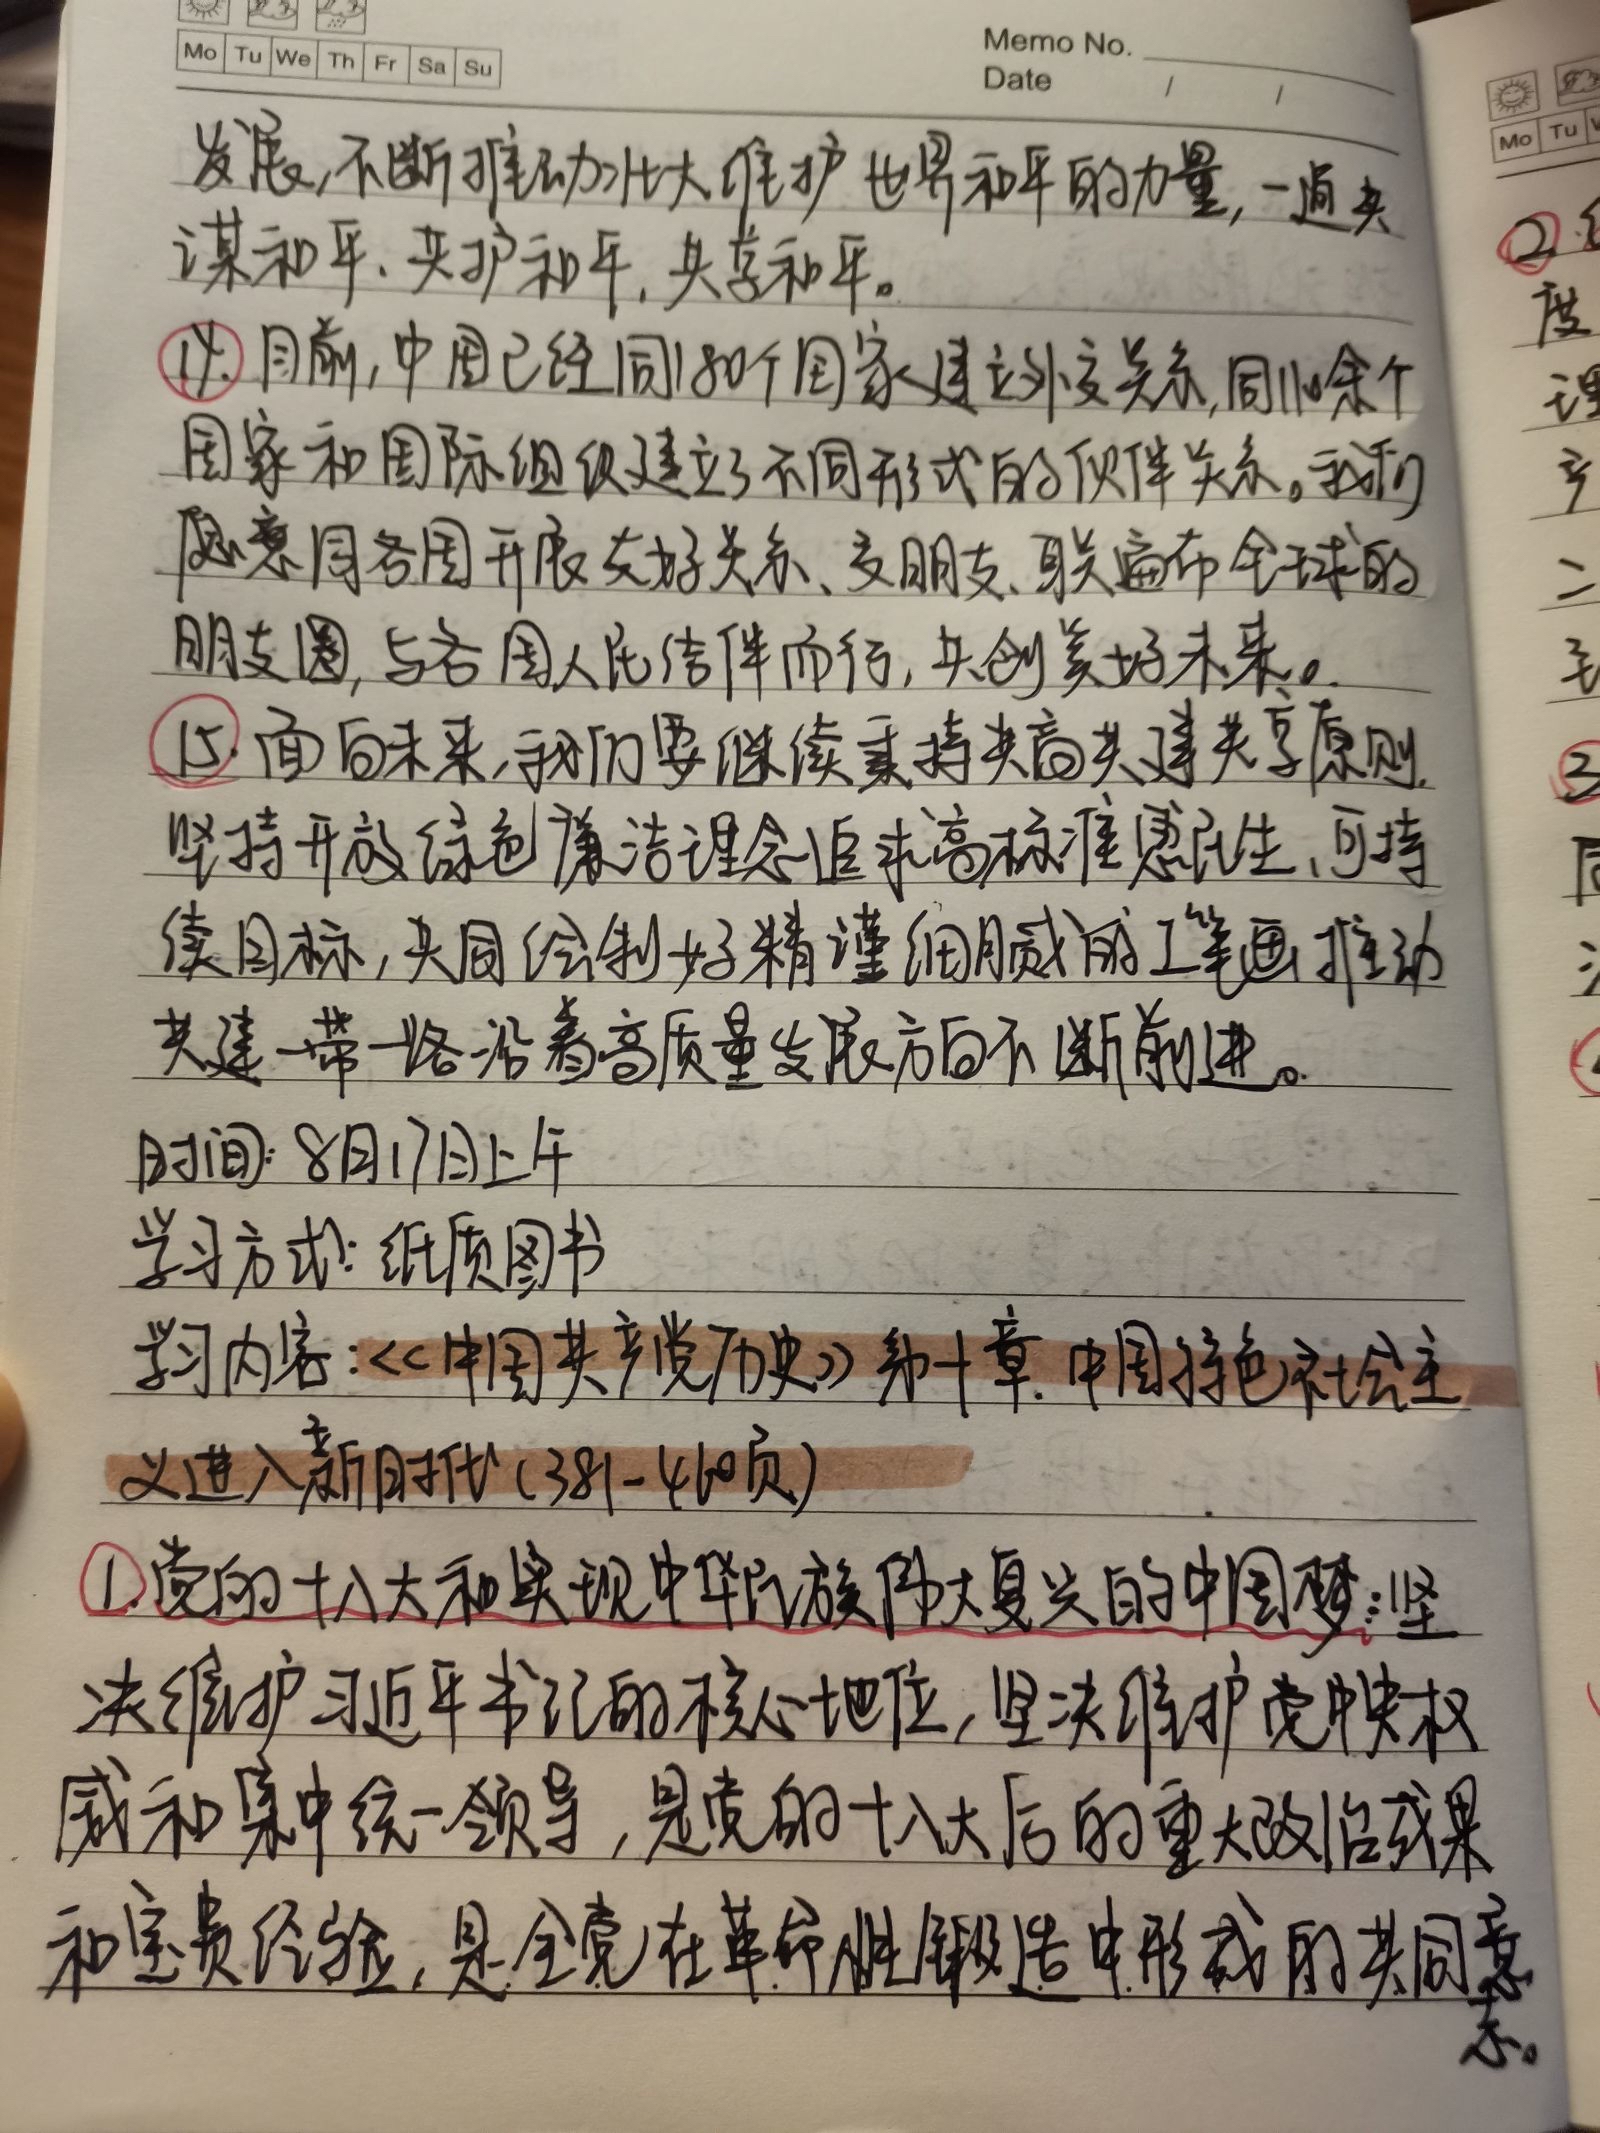 Mo Tu We Th Fr Sa Su
Memo No.
Date / /
发展,不断推动壮大维护世界和平的力量,一道共
谋和平、共护和平,共享和平。
14.目前,中国已经同180个国家建立外交关系,同110余个
国家和国际组织建立了不同形式的伙伴关系。我们
愿意同各国开展友好关系、交朋友、联遍布全球的
朋友圈,与各国人民结伴而行,共创美好未来。
15.面向未来,我们要继续秉持共商共建共享原则.
坚持开放绿色廉洁理念追求高标准惠民生、可持
续目标,共同绘制好精谨细腻的工笔画推动
共建一带一路沿着高质量发展方向不断前进。
时间:8月17日上午
学习方式:纸质图书
学习内容:<<中国共产党历史>>第十章.中国特色社会主
义进入新时代(381-460页)
1.党的十八大和实现中华民族伟大复兴的中国梦:坚
决维护习近平书记的核心地位,坚决维护党中央权
威和集中统一领导,是党的十八大后的重大政治成果
和宝贵经验,是全党在革命性锻造中形成的共同意
志。
Mo Tu
2.
度
理
3
同